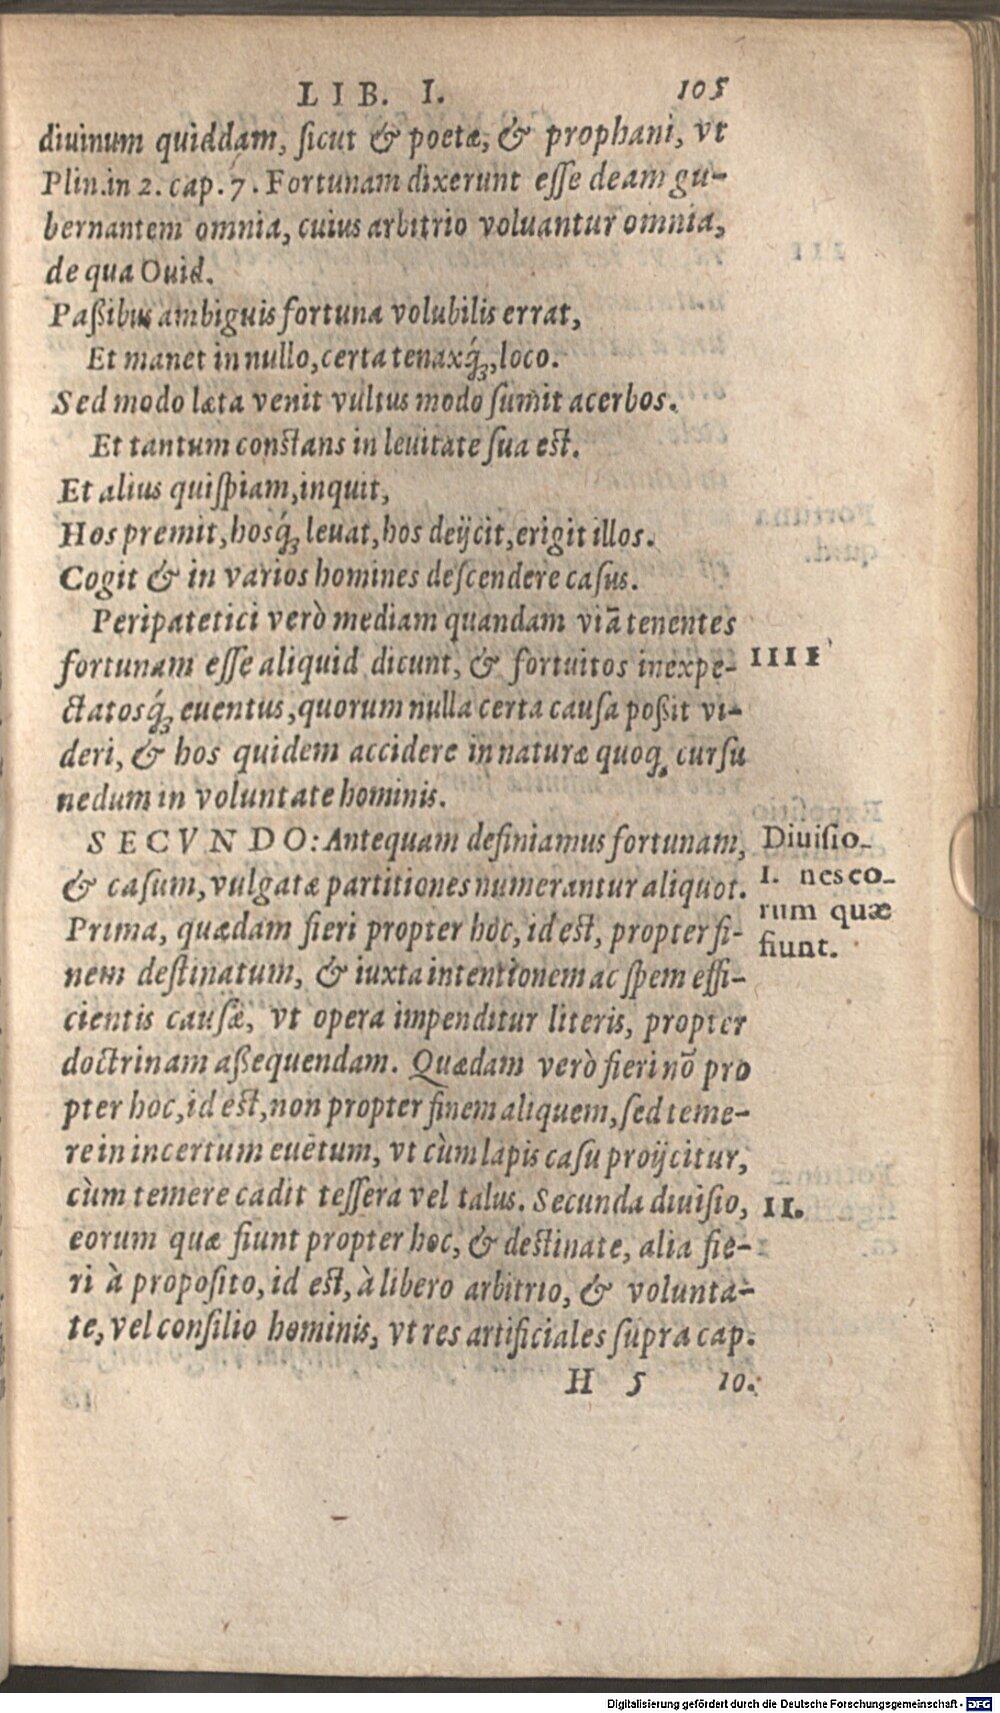 LIB. I. 105
diuinum quiddam, ſicut & poetæ, & prophani, vt
Plin. in 2. cap. 7. Fortunam dixerunt eſſe deam gu-
bernantem omnia, cuius arbitrio voluantur omnia,
de qua Ouid.
Paßibus ambiguis fortuna volubilis errat,
Et manet in nullo, certa tenaxq́ꝫ, loco.
Sed modo læta venit vultus modo ſumit acerbos.
Et tantum conſtans in leuitate ſua eſt.
Et alius quiſpiam, inquit,
Hos premit, hosq́ꝫ leuat, hos deijcit, erigit illos.
Cogit & in varios homines deſcendere caſus.
Peripatetici verò mediam quandam viã tenentes
fortunam eſſe aliquid dicunt, & fortuitos inexpe- IIII
ctatosq́ꝫ euentus, quorum nulla certa cauſa poßit vi-
deri, & hos quidem accidere in naturæ quoq. curſu
nedum in voluntate hominis.
SECVNDO: Antequam definiamus fortunam, Diuiſio-
& caſum, vulgatæ partitiones numerantur aliquot. I. nes eo-
Prima, quædam fieri propter hoc, id eſt, propter fi- rum quæ
nem deſtinatum, & iuxta intentionem ac ſpem effi- fiunt.
cientis cauſæ, vt opera impenditur literis, propter
doctrinam aßequendam. Quædam verò fieri nõ pro
pter hoc, id eſt, non propter finem aliquem, ſed teme-
re in incertum euẽtum, vt cùm lapis caſu proijcitur,
cùm temere cadit teſſera vel talus. Secunda diuiſio, II.
eorum quæ fiunt propter hoc, & deſtinate, alia fie-
ri à propoſito, id eſt, à libero arbitrio, & volunta-
te, vel conſilio hominis, vt res artificiales ſupra cap.
H 5 10.
Digitalisierung gefördert durch die Deutsche Forschungsgemeinschaft - DFG